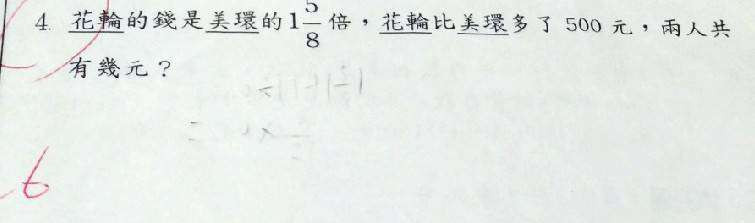 4. 花輪的錢是美環的1 5/8 倍，花輪比美環多了 500 元，兩人共
有幾元？
6